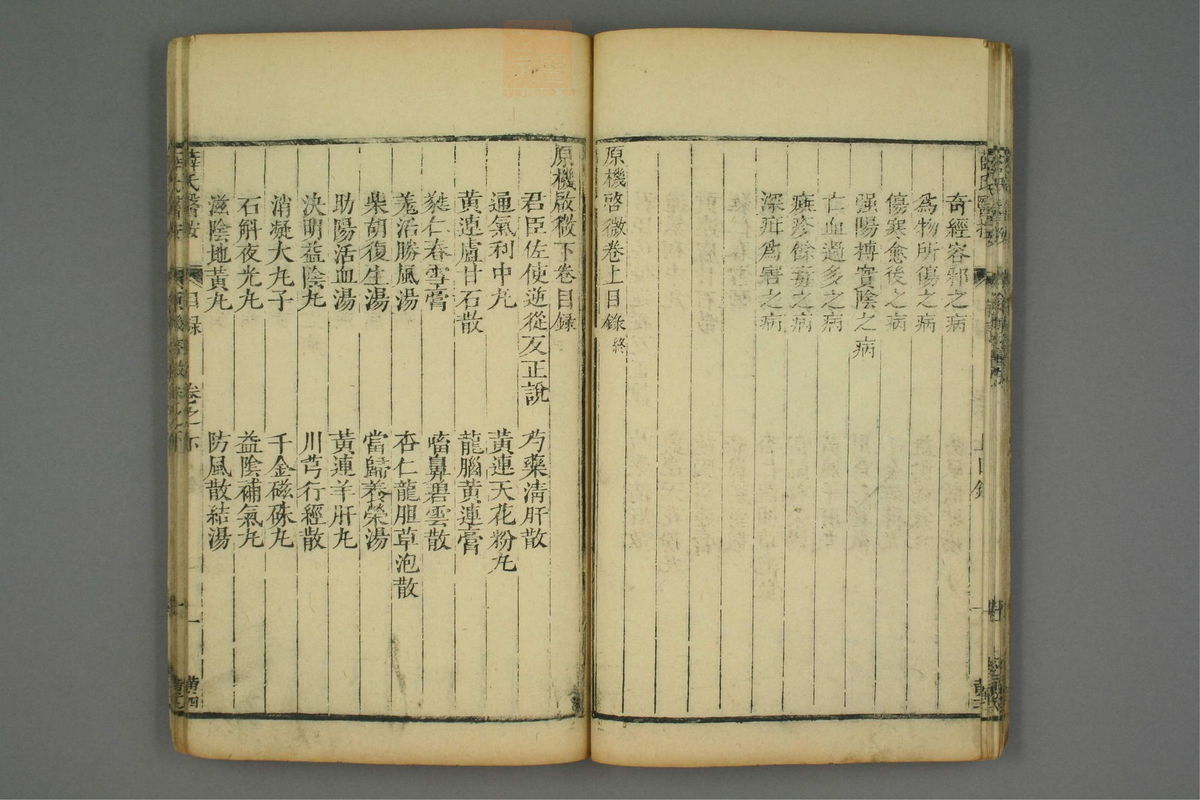 奇經容邪之病
爲物所傷之病
傷寒愈後之病
强陽摶實陰之病
亡血過多之病
癍疹餘毒之病
深疳爲害之病
原機啓微卷上目錄終
原機啟微下卷目錄
君臣佐使逆從反正說
芍藥清肝散
通氣利中丸
黃連天花粉丸
黃連盧甘石散
龍腦黃連膏
蕤仁春雪膏
㗜鼻碧雲散
羗活勝風湯
杏仁龍胆草泡散
柴胡復生湯
當歸養榮湯
助陽活血湯
黃連羊肝丸
決明益陰丸
川芎行經散
消凝大丸子
千金磁硃丸
石斛夜光丸
益陰補氣丸
滋陰地黃丸
防風散結湯
薛氏醫按
目錄
卷之下
一
黄四